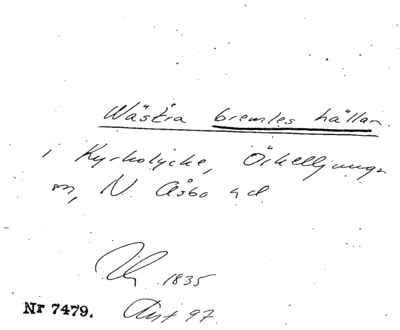 Wästra bremles hällan.
i Kyrkolycke, Örkelljunga
sn, N. Åsbo hd.
1835
Nr 7479. Avst 97.